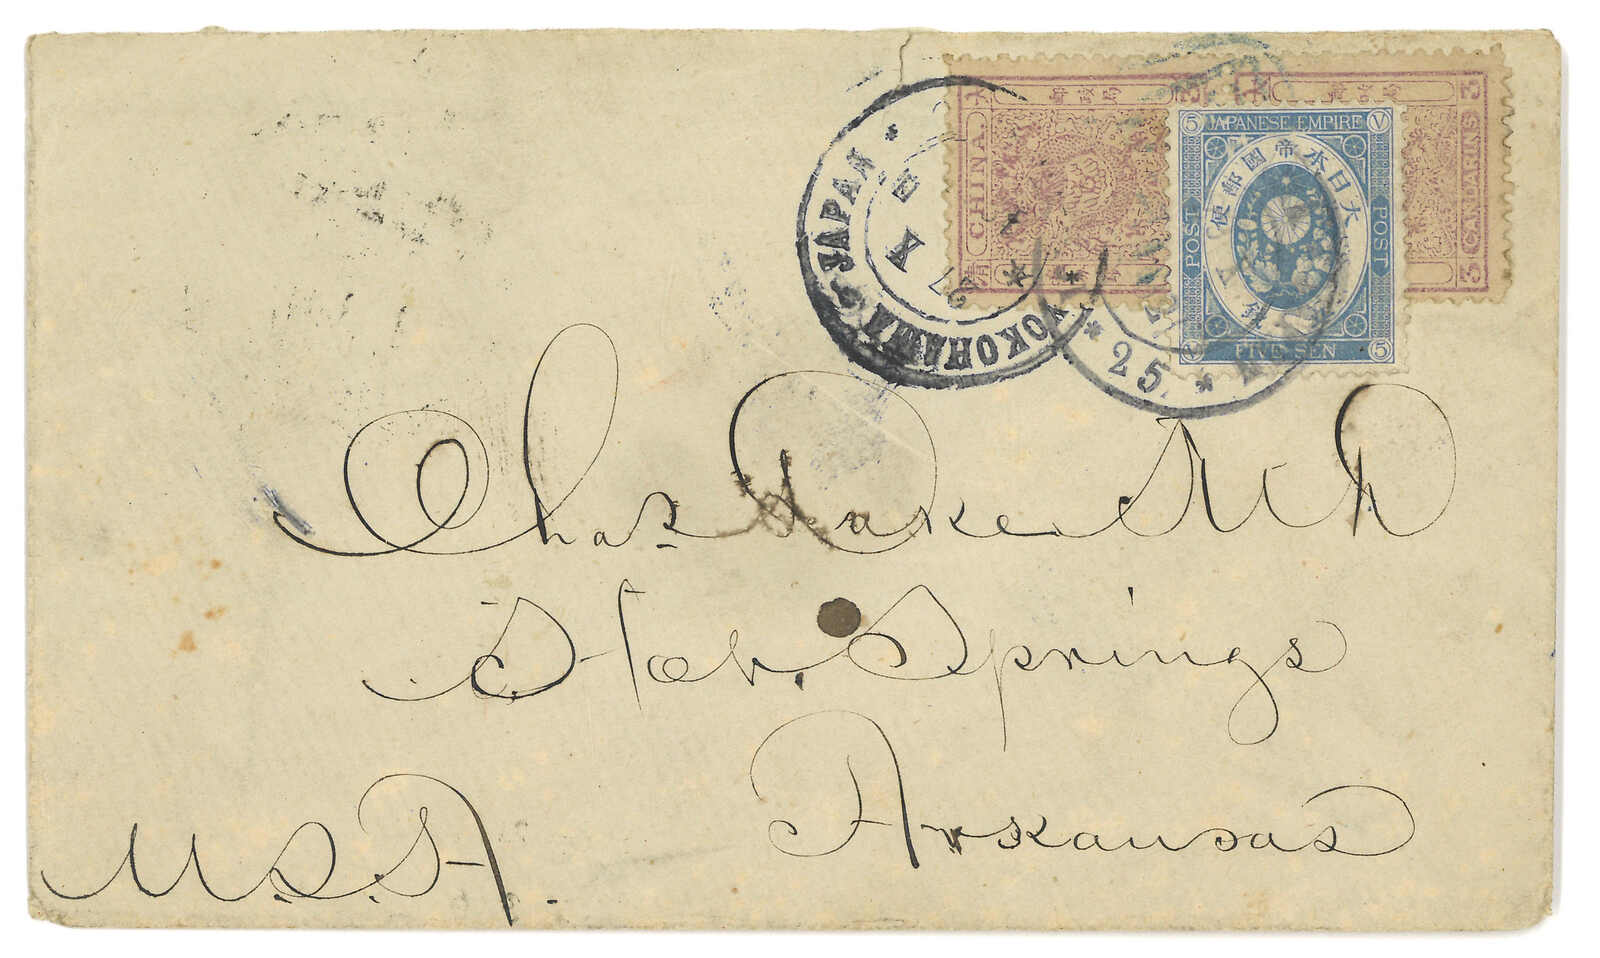 CHINA
大
郵政局
3
3
CANDARINS
3
5 JAPANESE EMPIRE V
大日本帝國郵便
POST
POST
V FIVE SEN 5
YOKOHAMA JAPAN
X
25
Chas Drake M D
Hot Springs
Arkansas
U.S.A.